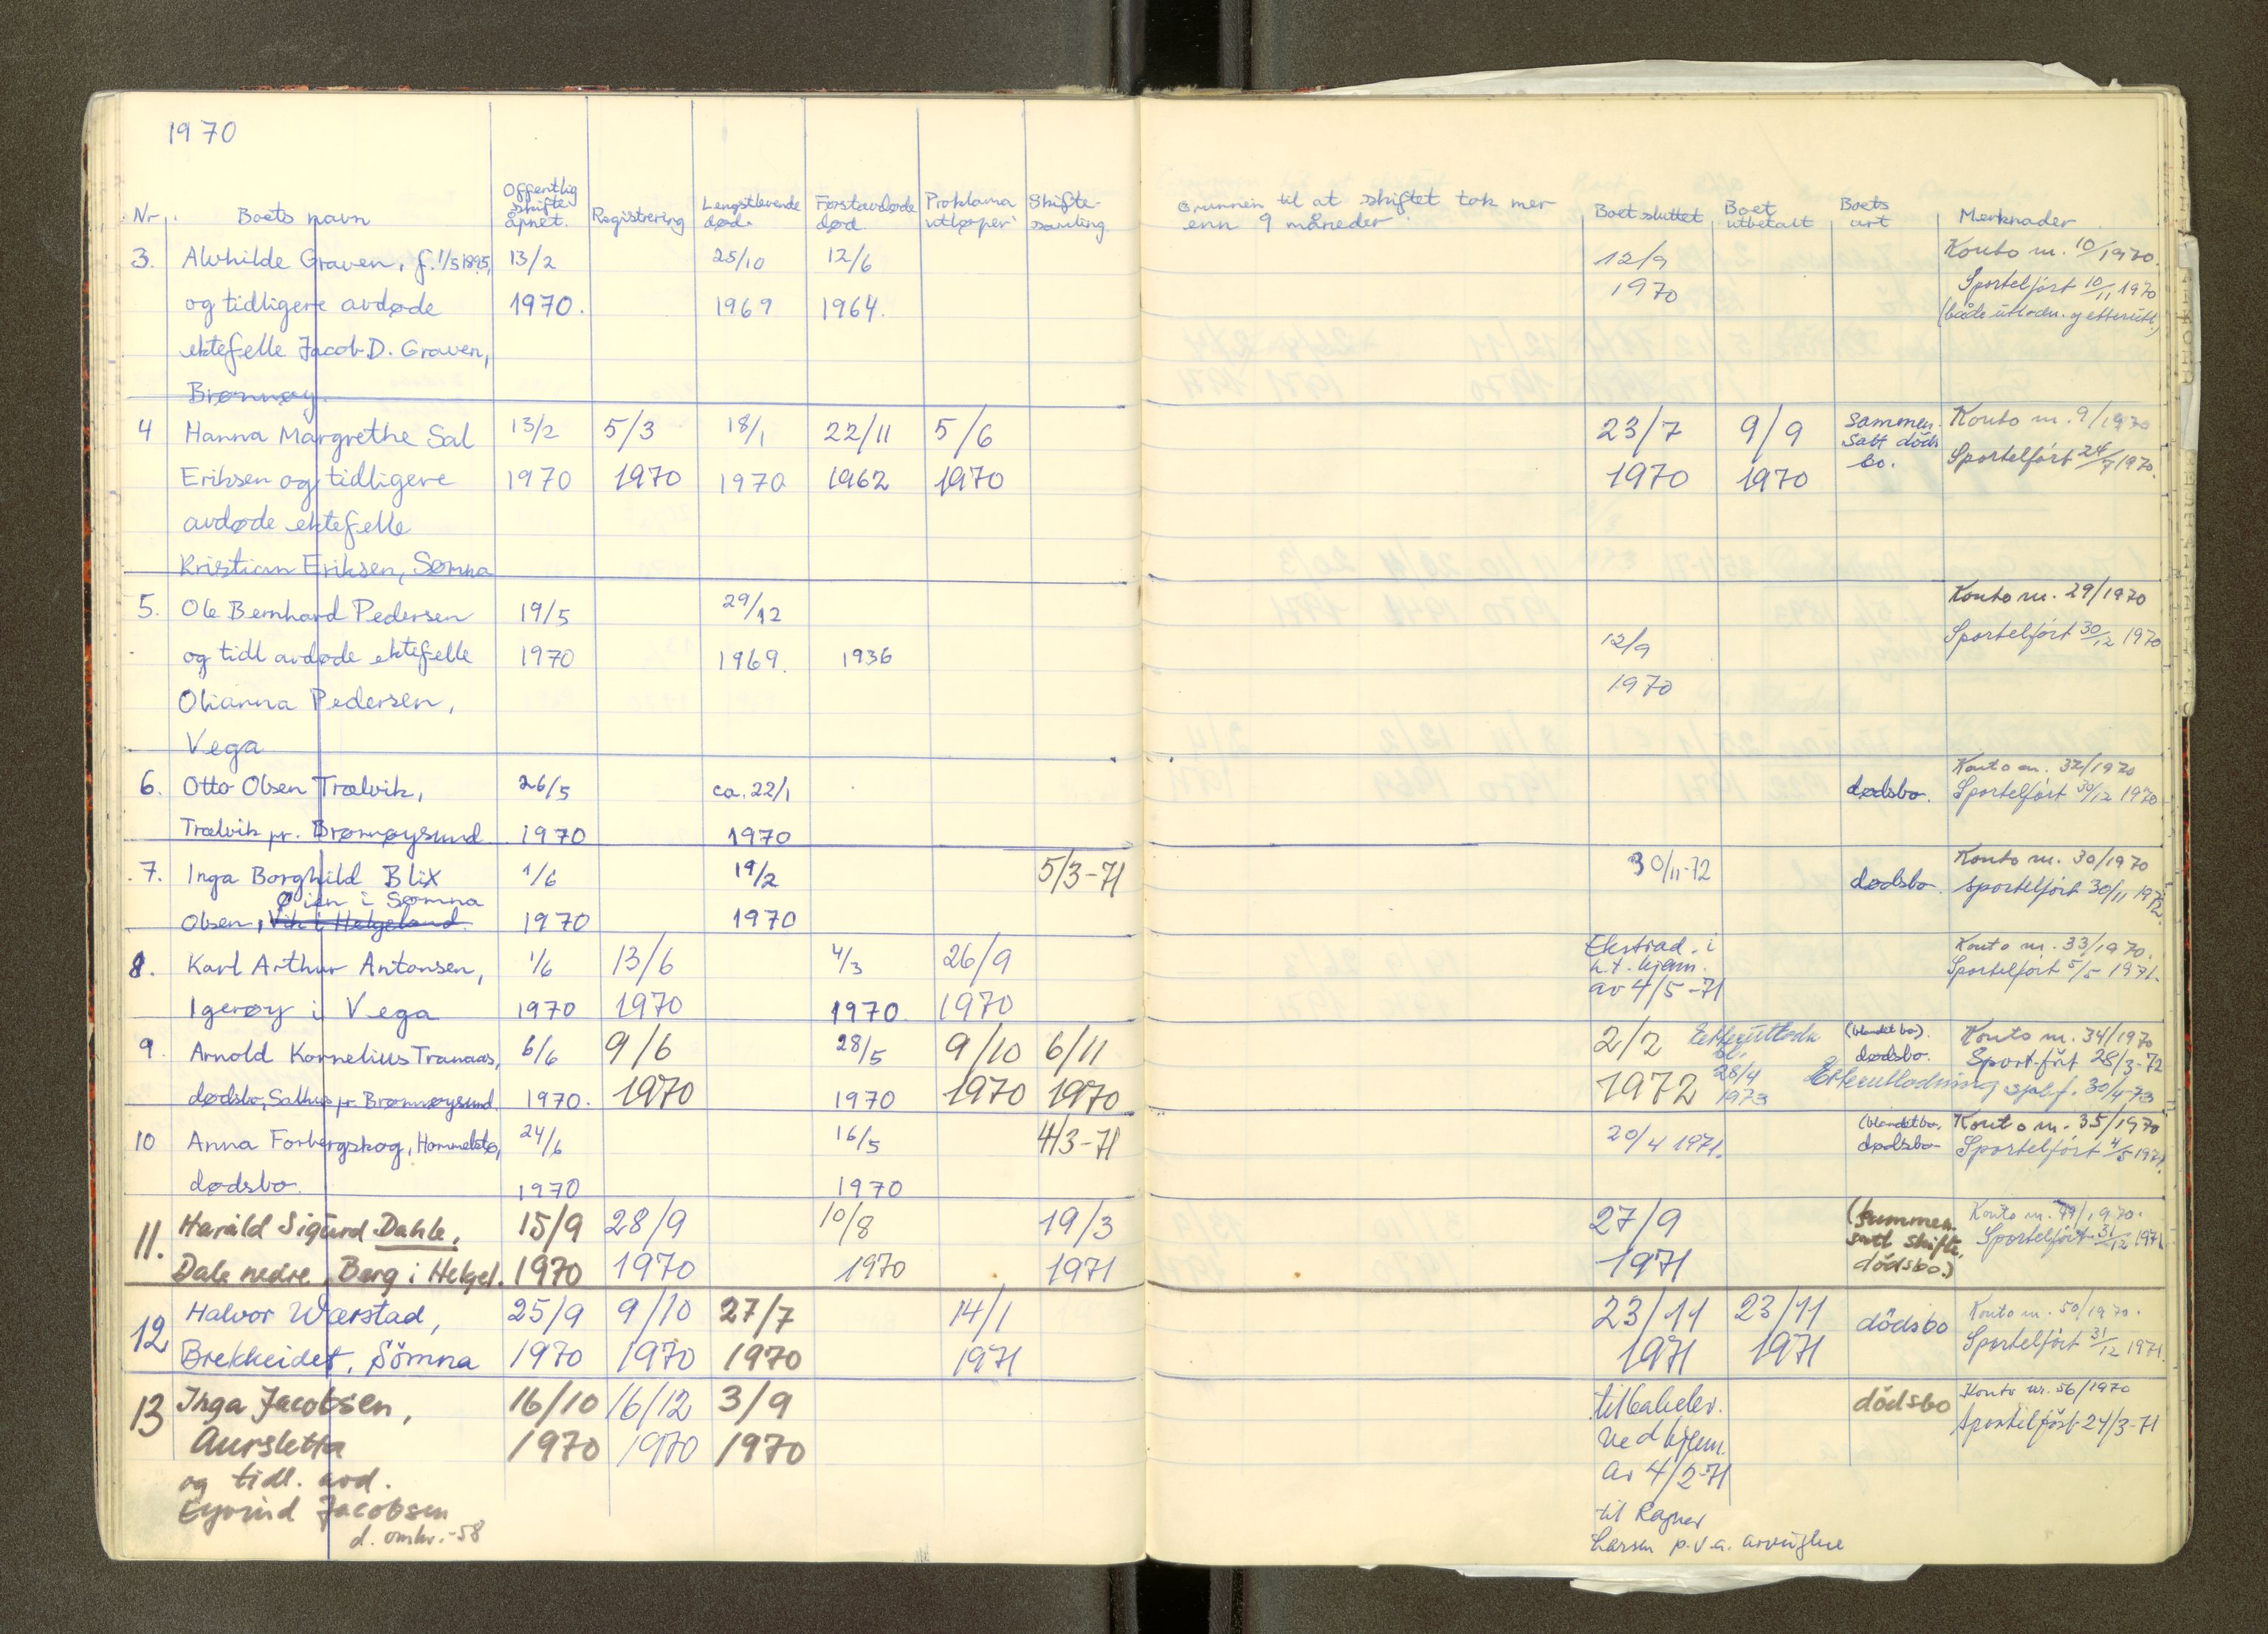 1970
Nr. Boets navn Offentlig skifte åpnet. Registrering Lengstlevende død. Førstavdøde død Proklama utløper Skiftesamling Grunnen til at skiftet tok mer enn 9 måneder Boet sluttet Boet utbetalt Boets art Merknader
3. Alvhilde Graven, f. 1/5 1895, 13/2 25/10 12/6 12/9 Konto nr. 10/1970.
og tidligere avdøde 1970. 1969 1964. 1970 Sportelført 10/11 1970
ektefelle Jacob D. Graven, (både utlodn. og etterutl.)
Brønnøy.
4 Hanna Margrethe Sal 13/2 5/3 18/1 22/11 5/6 23/7 9/9 sammensatt døds Konto nr. 9/1970
Eriksen og tidligere 1970 1970 1970 1962 1970 1970 1970 bo. Sportelført 24/7 1970.
avdøde ektefelle
Kristian Eriksen, Sømna
5. Ole Bernhard Pedersen 19/5 29/12 Konto nr. 29/1970
og tidl avdøde ektefelle 1970 1969. 1936 12/9 Sportelført 30/12 1970
Olianna Pedersen, 1970
Vega
6. Otto Olsen Trælvik, 26/5 ca. 22/1 dødsbo. Konto nr. 32/1970
Trælvik pr. Brønnøysund 1970 1970 Sportelført 30/12 1970
7. Inga Borghild Blix 1/6 19/2 5/3-71 30/11-72 dødsbo. Konto nr. 30/1970
Øien i Sømna
Olsen, Vik i Helgeland. 1970 1970 Sportelført 30/11 1972.
8. Karl Arthur Antonsen, 1/6 13/6 4/3 26/9 Ekstrad. i h.t. kjenn. Konto nr. 33/1970.
Igerøy i Vega 1970 1970 1970. 1970 av 4/5-71 Sportelført 5/5 1971.
9. Arnold Kornelius Tranaas, 6/6 9/6 28/5 9/10 6/11 2/2 Etterutlodn (blandet bo). dødsbo. Konto nr. 34/1970
Sport.ført 28/3-72
dødsbo, Salhus pr. Brønnøysund. 1970. 1970 1970 1970 1970 1972 28/4 1973 Etterutlodning spl.f. 30/4-73
10 Anna Forbergskog, Hommelstø, 24/6 16/5 4/3-71 20/4 1971. (blandet bo. Konto nr. 35/1970
dødsbo. 1970 1970 dødsbo Sportelført 4/5 1971.
11. Harald Sigurd Dahle, 15/9 28/9 10/8 19/3 27/9 (sammensatt skifte, Konto nr. 49/1970.
Dale nedre, Berg i Helgel. 1970 1970 1970 1971 1971 dödsbo) Sportelført 31/12 1971
12 Halvor Wærstad, 25/9 9/10 27/7 14/1 23/11 23/11 dödsbo Konto nr. 50/1970.
Brekkeidet, Sömna 1970 1970 1970 1971 1971 1971 Sportelført 31/12 1971.
13 Inga Jacobsen, 16/10 16/12 3/9 tilbakelev. dödsbo Konto nr. 56/1970
Aursletta 1970 1970 1970 ved kjenn. Sportelfört 24/3-71
og tidl. avd. av 4/2-71
Eyvind Jacobsen til Ragnar
d. omkr. -58 Larsen p.v.a. arvingene